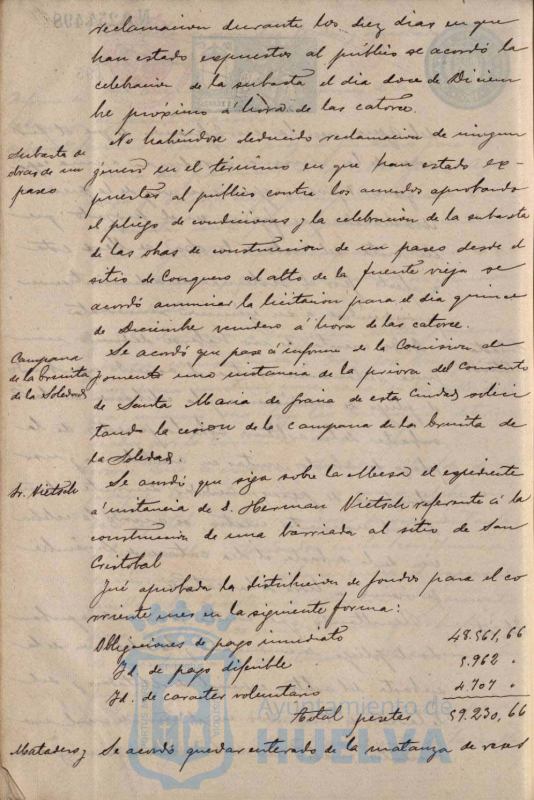 reclamacion durante los diez dias en que
han estado expuestos al público se acordó la
celebracion de la subasta el dia doce de Diciem
bre próximo á hora de las catorce.
Subasta de
obras de un
paseo
No habiéndose deducido reclamacion de ningun
género en el término en que han estado ex-
puestas al público contra los acuerdos aprobando
el pliego de condiciones y la celebracion de la subasta
de las obras de construccion de un paseo desde el
sitio de Conquero al alto de la fuente vieja se
acordó anunciar la licitacion para el dia quince
de Diciembre venidero á hora de las catorce.
Campana
de la Ermita
de la Soledad
Se acordó que pase á informe de la Comision de
fomento una instancia de la priora del Convento
de Santa Maria de Gracia de esta Ciudad solici
tando la cesion de la campana de la Ermita de
la Soledad.
Sr. Nietsch
Se acordó que siga sobre la Mesa el expediente
á instancia de D. Herman Nietsch referente á la
construccion de una barriada al sitio de San
Cristobal
Fué aprobada la distribucion de fondos para el co
rriente mes en la siguiente forma:
Obligaciones de pago inmediato 48.561,66
Id. de pago diferible 5.962 "
Id. de caracter voluntario 4.707 "
Total pesetas 59.230,66
Matadero y Se acordó quedar enterado de la matanza de reses
Ayuntamiento de
HUELVA